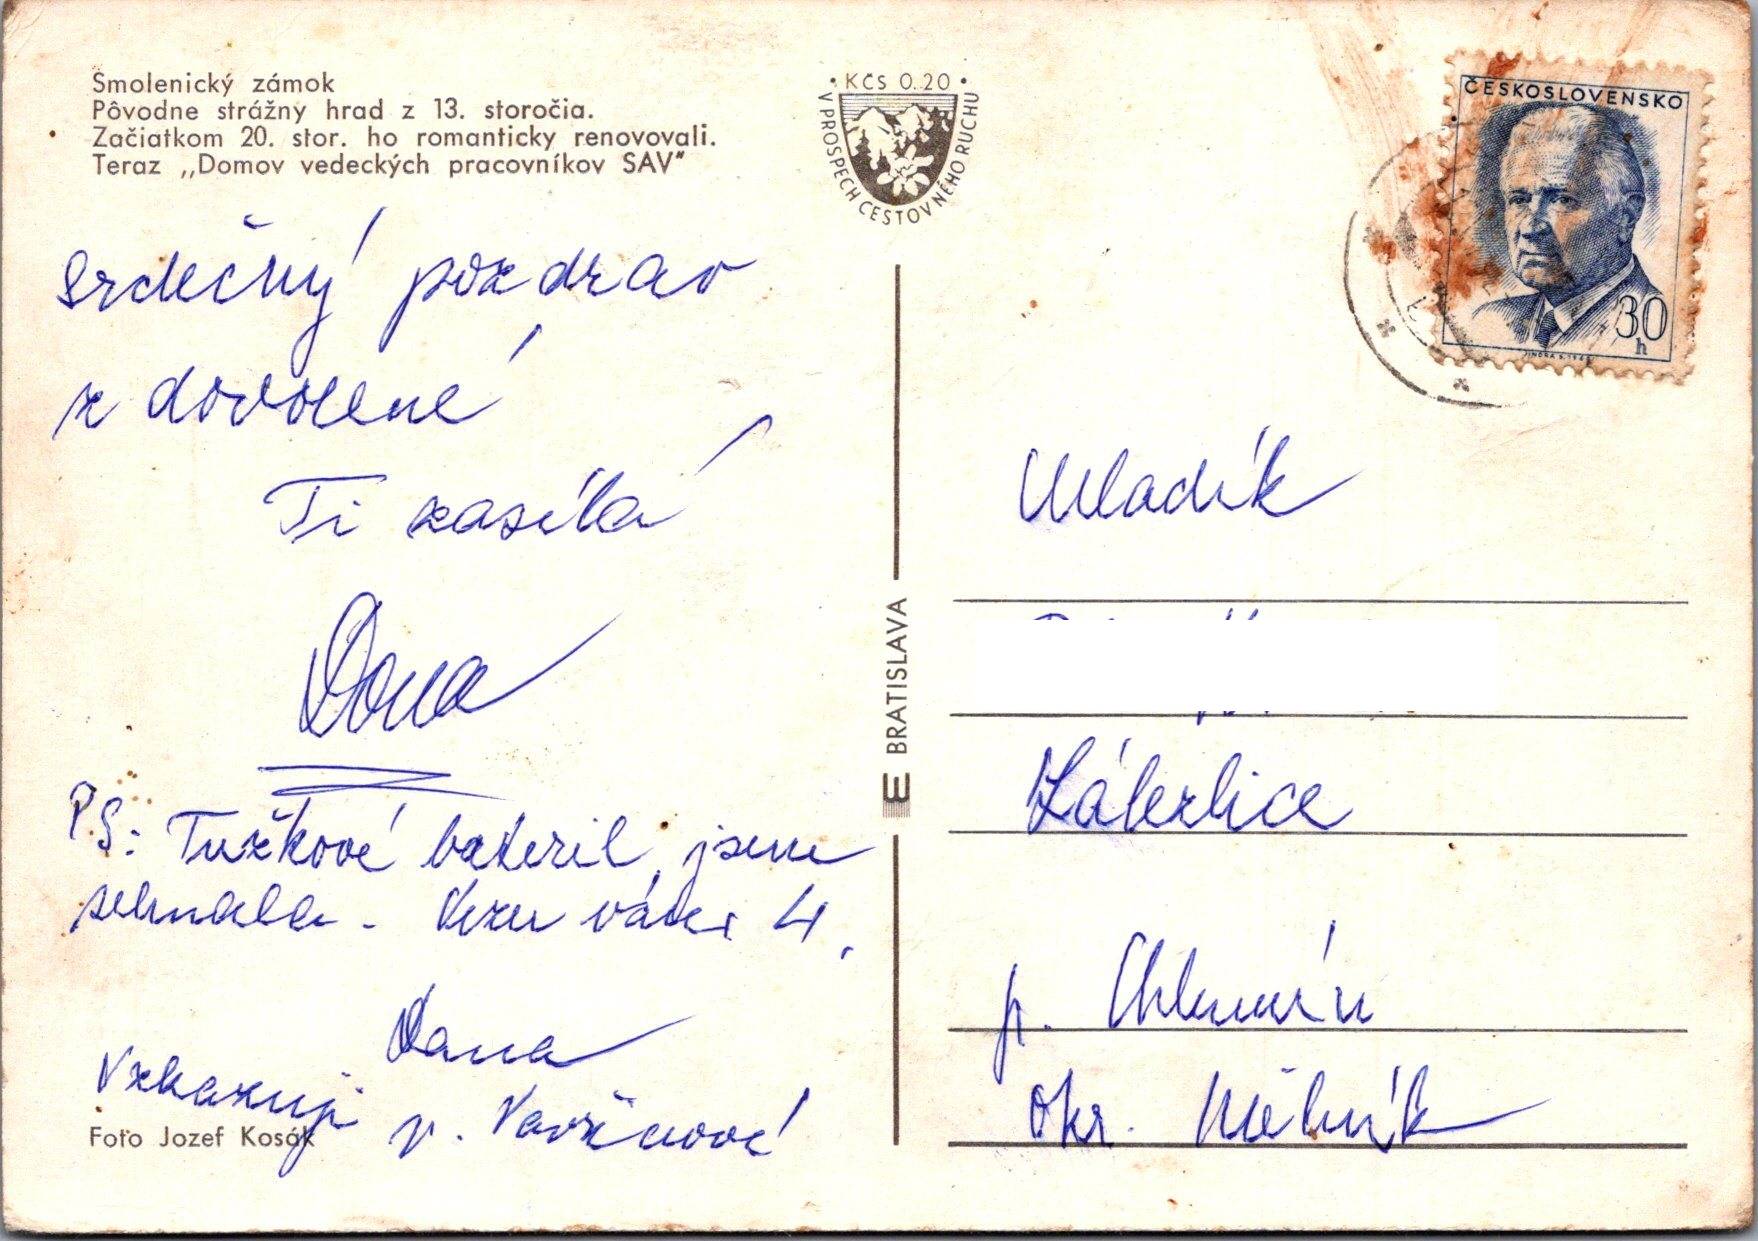 Smolenický zámok
Pôvodne strážny hrad z 13. storočia.
Začiatkom 20. stor. ho romanticky renovovali.
Teraz ,,Domov vedeckých pracovníkov SAV"
• KČS 0.20 •
V PROSPECH CESTOVNÉHO RUCHU
ČESKOSLOVENSKO
30
h
JINDRA S. 1968
Srdečný pozdrav
z dovolené
Ti zasílá
Dana
PS: Tužkové baterie jsem
sehnala. Vezu 4.
Dana
Vzkazuji
p.
Foto Jozef Kosák
E BRATISLAVA
Mladík
Zálezlice
p. Chlumín
okr. Mělník